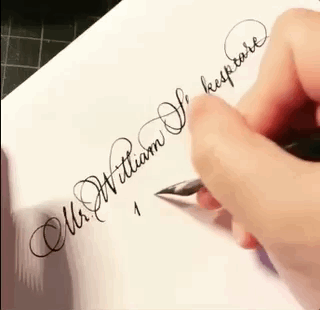 Mr. William Shakespeare
1